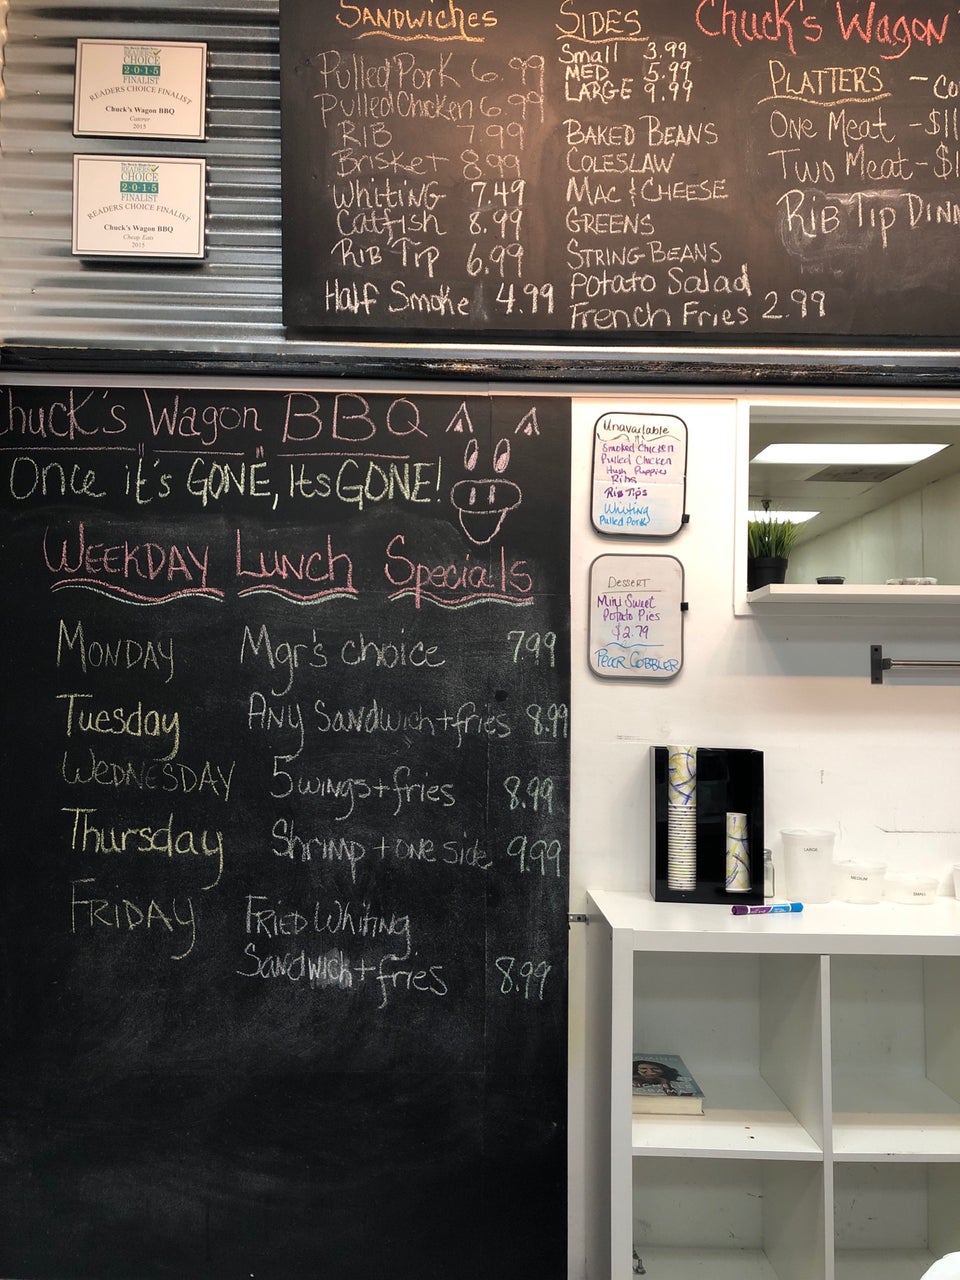 The Beech Blvds News
READERS
CHOICE
2·0·1·5
FINALIST
READERS CHOICE FINALIST
Chuck's Wagon BBQ
Caterer
2015
READERS
CHOICE
2·0·1·5
FINALIST
READERS CHOICE FINALIST
Chuck's Wagon BBQ
Cheap Eats
2015
SANDWICHES
Pulled Pork 6.99
Pulled Chicken 6.99
RIB 7.99
Brisket 8.99
WHITING 7.49
Catfish 8.99
RIB TIP 6.99
Half Smoke 4.99
SIDES
Small 3.99
MED 5.99
LARGE 9.99
BAKED BEANS
COLESLAW
MAC & CHEESE
GREENS
STRING BEANS
Potato Salad
French Fries 2.99
Chuck's Wagon
PLATTERS -
ONE MEAT - $11
TWO MEAT - $1
RIB TIP DINN
huck's Wagon BBQ
Once it's "GONE", Its GONE!
WEEKDAY Lunch Specials
MONDAY Mgr's choice 7.99
Tuesday ANY Sandwich + fries 8.99
WEDNESDAY 5 wings + fries 8.99
Thursday Shrimp + one side 9.99
FRIDAY FRIED Whiting
Sandwich + fries 8.99
Unavailable
Smoked Chicken
Pulled Chicken
Hush Puppies
Ribs
Rib Tips
Whiting
Pulled Pork
DESSERT
Mini Sweet
Potato Pies
$2.79
PEACH COBBLER
LARGE
MEDIUM
SMALL